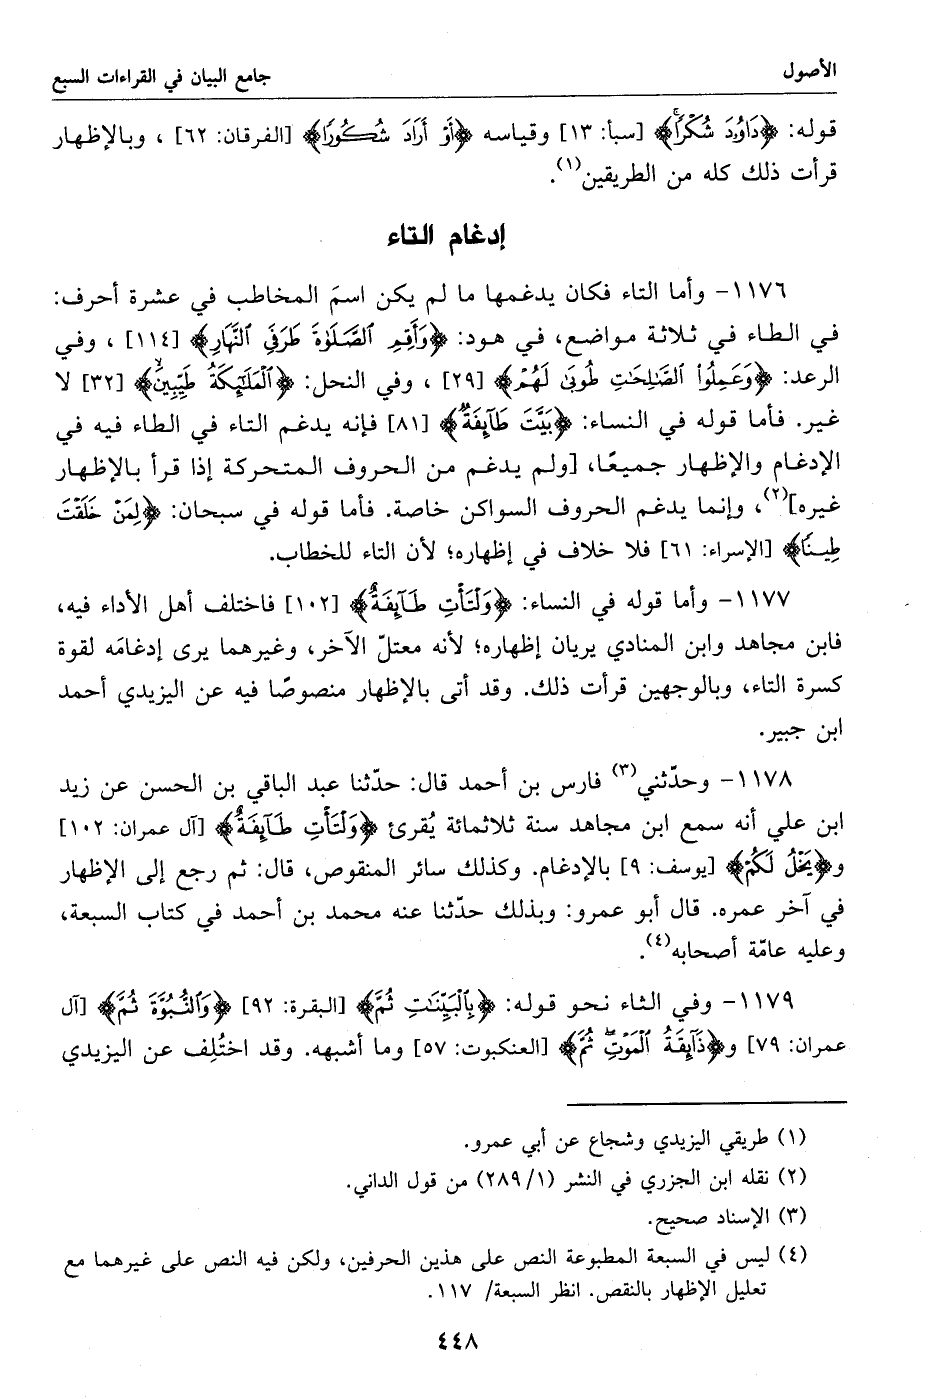 الأصول
جامع البيان في القراءات السبع
قوله: ﴿دَاوُۥدَ شُكْرًاۚ﴾ [سبأ: ١٣] وقياسه ﴿أَوْ أَرَادَ شُكُورًا﴾ [الفرقان: ٦٢] ، وبالإظهار
قرأت ذلك كله من الطريقين(١).
إدغام التاء
١١٧٦- وأما التاء فكان يدغمها ما لم يكن اسمَ المخاطب في عشرة أحرف:
في الطاء في ثلاثة مواضع، في هود: ﴿وَأَقِمِ ٱلصَّلَوٰةَ طَرَفَيِ ٱلنَّهَارِ﴾ [١١٤] ، وفي
الرعد: ﴿وَعَمِلُوا۟ ٱلصَّٰلِحَٰتِ طُوبَىٰ لَهُمْ﴾ [٢٩] ، وفي النحل: ﴿ٱلْمَلَٰٓئِكَةُ طَيِّبِينَۙ﴾ [٣٢] لا
غير. فأما قوله في النساء: ﴿بَيَّتَ طَآئِفَةٌ﴾ [٨١] فإنه يدغم التاء في الطاء فيه في
الإدغام والإظهار جميعًا، [ولم يدغم من الحروف المتحركة إذا قرأ بالإظهار
غيره](٢)، وإنما يدغم الحروف السواكن خاصة. فأما قوله في سبحان: ﴿لِمَنْ خَلَقْتَ
طِينًا﴾ [الإسراء: ٦١] فلا خلاف في إظهاره؛ لأن التاء للخطاب.
١١٧٧- وأما قوله في النساء: ﴿وَلْتَأْتِ طَآئِفَةٌ﴾ [١٠٢] فاختلف أهل الأداء فيه،
فابن مجاهد وابن المنادي يريان إظهاره؛ لأنه معتلّ الآخر، وغيرهما يرى إدغامَه لقوة
كسرة التاء، وبالوجهين قرأت ذلك. وقد أتى بالإظهار منصوصًا فيه عن اليزيدي أحمد
ابن جبير.
١١٧٨- وحدّثني(٣) فارس بن أحمد قال: حدّثنا عبد الباقي بن الحسن عن زيد
ابن علي أنه سمع ابن مجاهد سنة ثلاثمائة يُقرئ ﴿وَلْتَأْتِ طَآئِفَةٌ﴾ [آل عمران: ١٠٢]
و﴿يَخْلُ لَكُمْ﴾ [يوسف: ٩] بالإدغام. وكذلك سائر المنقوص، قال: ثم رجع إلى الإظهار
في آخر عمره. قال أبو عمرو: وبذلك حدّثنا عنه محمد بن أحمد في كتاب السبعة،
وعليه عامّة أصحابه(٤).
١١٧٩- وفي الثاء نحو قوله: ﴿بِٱلْبَيِّنَٰتِ ثُمَّ﴾ [البقرة: ٩٢] ﴿وَٱلنُّبُوَّةَ ثُمَّ﴾ [آل
عمران: ٧٩] و﴿ذَآئِقَةُ ٱلْمَوْتِۖ ثُمَّ﴾ [العنكبوت: ٥٧] وما أشبهه. وقد اختُلِف عن اليزيدي
(١) طريقي اليزيدي وشجاع عن أبي عمرو.
(٢) نقله ابن الجزري في النشر (١/ ٢٨٩) من قول الداني.
(٣) الإسناد صحيح.
(٤) ليس في السبعة المطبوعة النص على هذين الحرفين، ولكن فيه النص على غيرهما مع
تعليل الإظهار بالنقص. انظر السبعة/ ١١٧.
٤٤٨